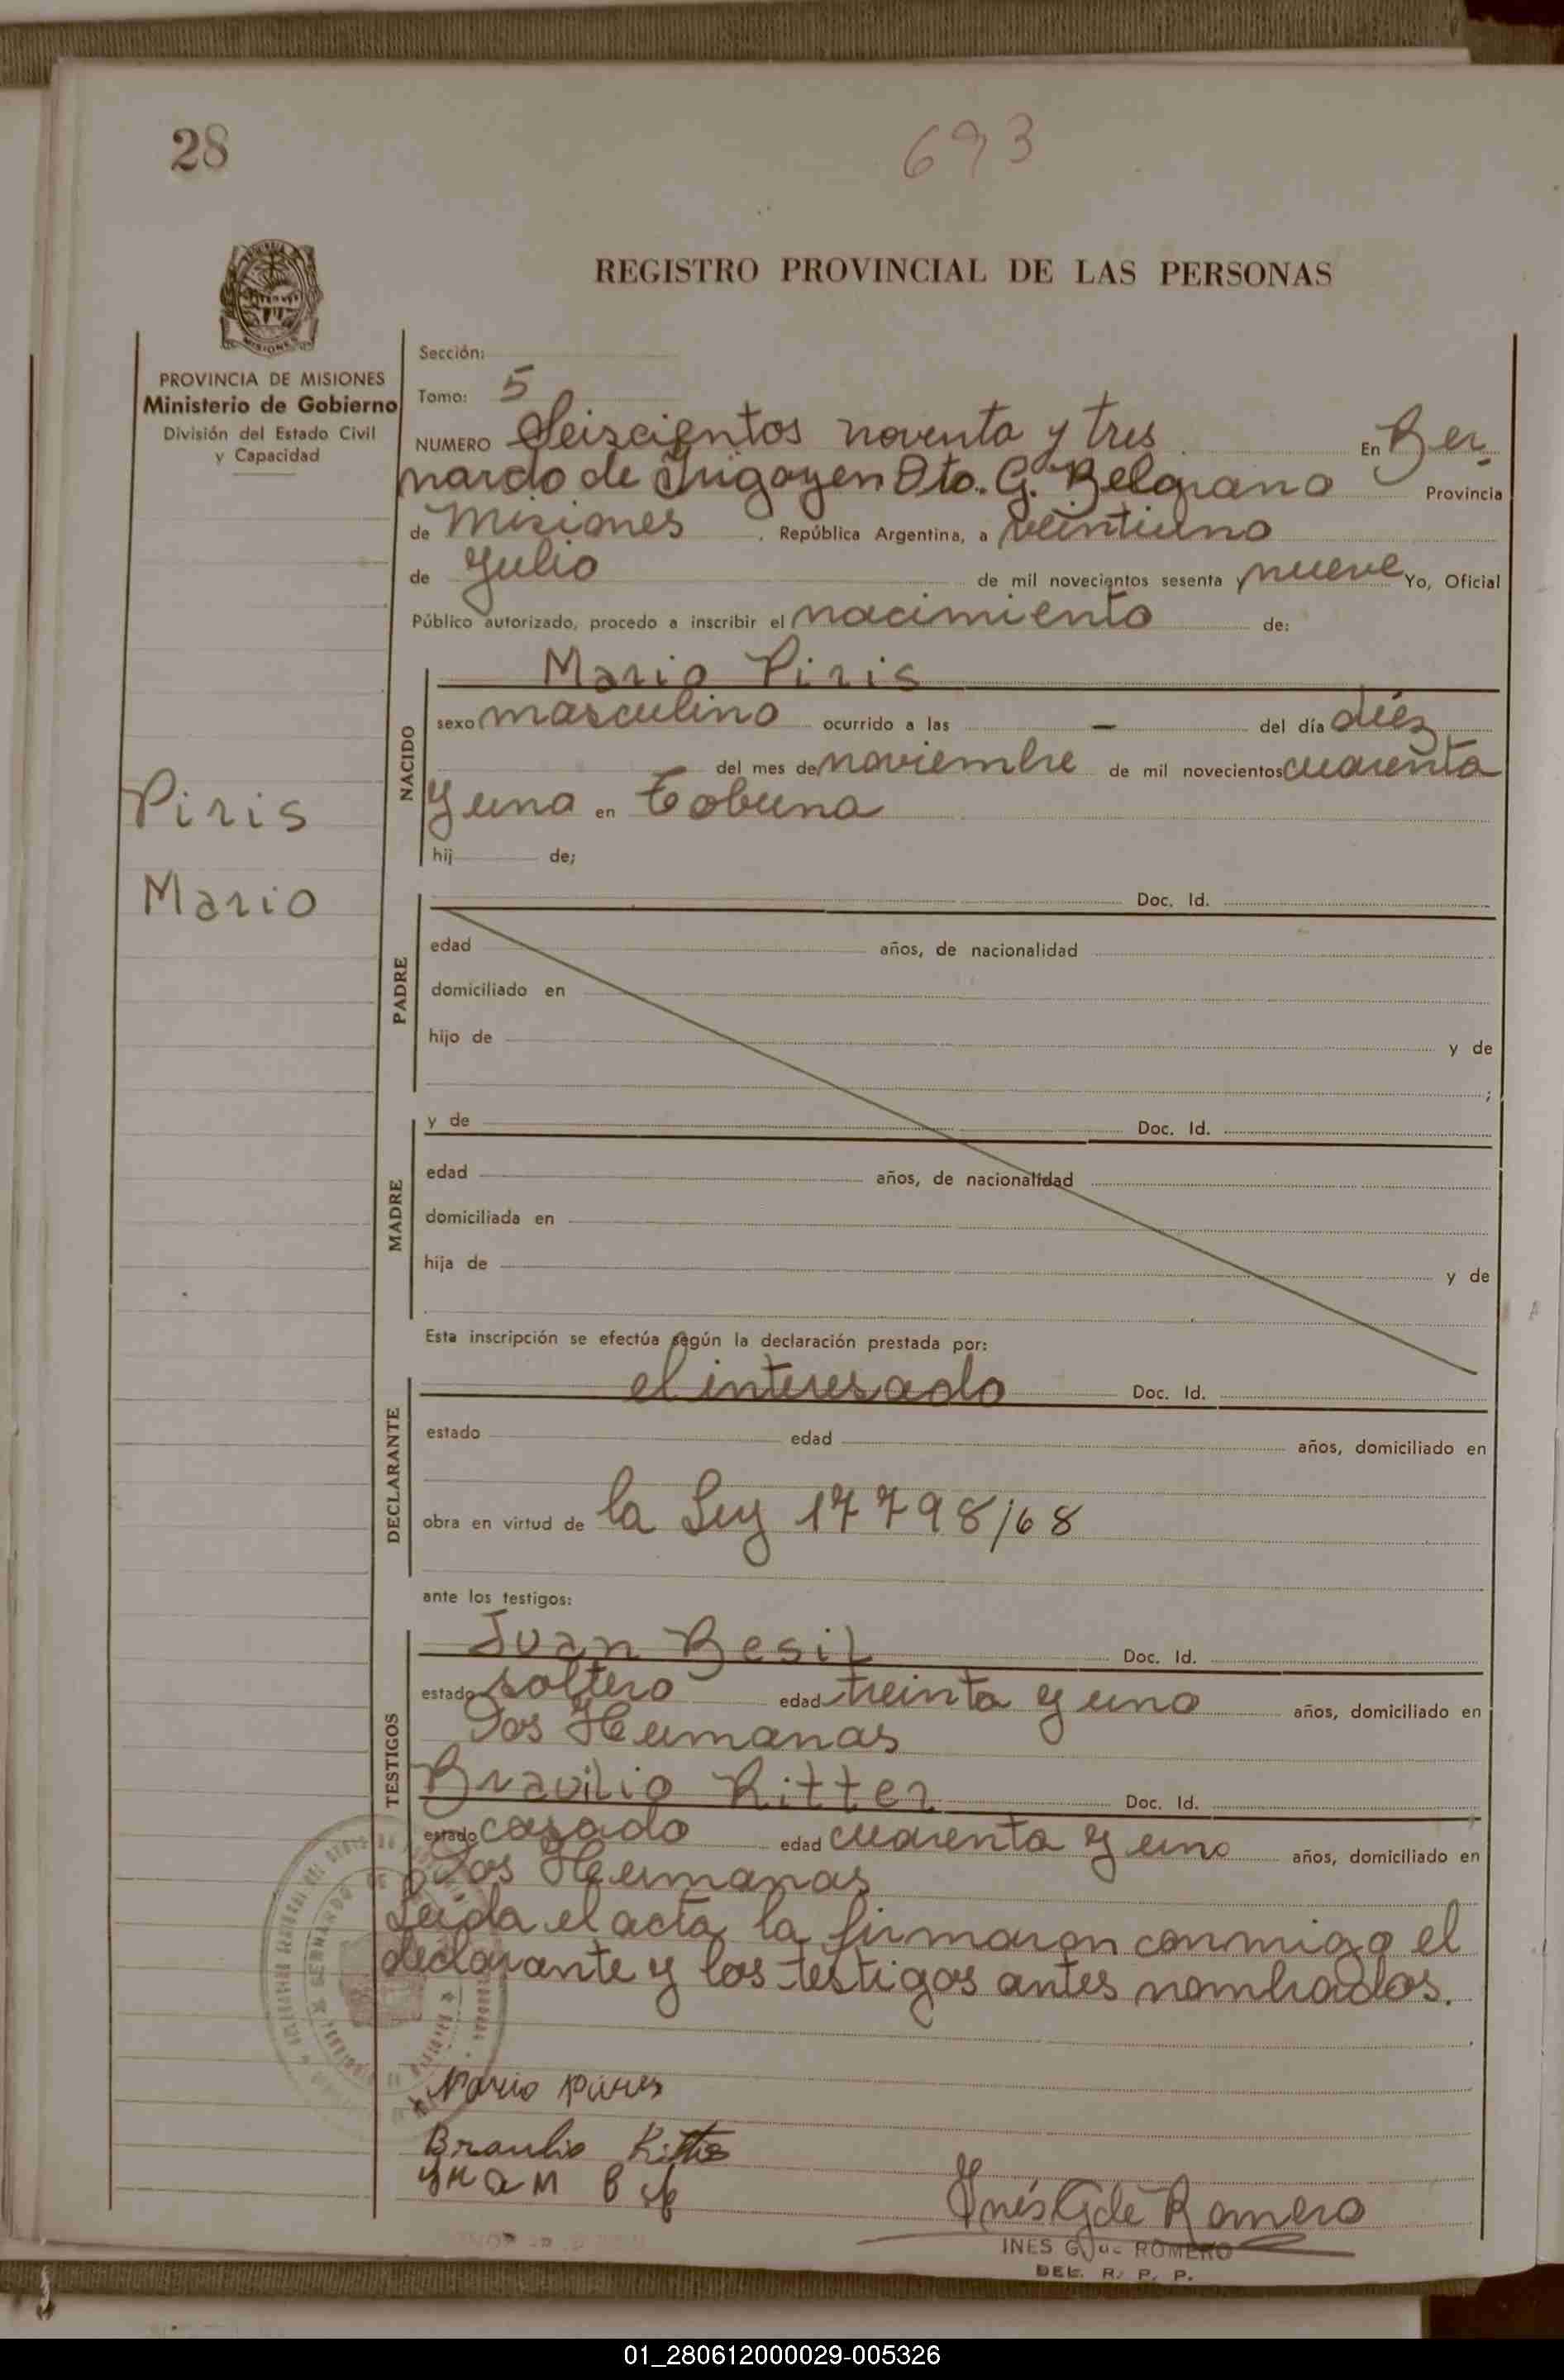 28
693
REGISTRO PROVINCIAL DE LAS PERSONAS
PROVINCIA DE MISIONES
Ministerio de Gobierno
División del Estado Civil
y Capacidad
Sección:
Tomo: 5
NUMERO Seiscientos noventa y tres En Ber-
nardo de Irigoyen Dto. G. Belgrano Provincia
de Misiones, República Argentina, a veintiuno
de Julio de mil novecientos sesenta y nueve Yo, Oficial
Público autorizado, procedo a inscribir el nacimiento de:
NACIDO
Mario Piris
sexo masculino ocurrido a las — del día diéz
del mes de noviembre de mil novecientos cuarenta
y uno en Tobuna
hij de;
Piris
Mario
PADRE
Doc. Id.
edad años, de nacionalidad
domiciliado en
hijo de y de
;
MADRE
y de Doc. Id.
edad años, de nacionalidad
domiciliada en
hija de y de
Esta inscripción se efectúa según la declaración prestada por:
DECLARANTE
el interesado Doc. Id.
estado edad años, domiciliado en
obra en virtud de la Ley 17798/68
ante los testigos:
TESTIGOS
Juan Besil Doc. Id.
estado soltero edad treinta y uno años, domiciliado en
Dos Hermanas
Bravilio Ritter Doc. Id.
estado casado edad cuarenta y uno años, domiciliado en
Dos Hermanas
Leida el acta la firmaron conmigo el
declarante y los testigos antes nombrados.
Mario Pires
Braulio Ritter
Inés G de Romero
INES G. de ROMERO
DEL. R. P. P.
01_280612000029-005326